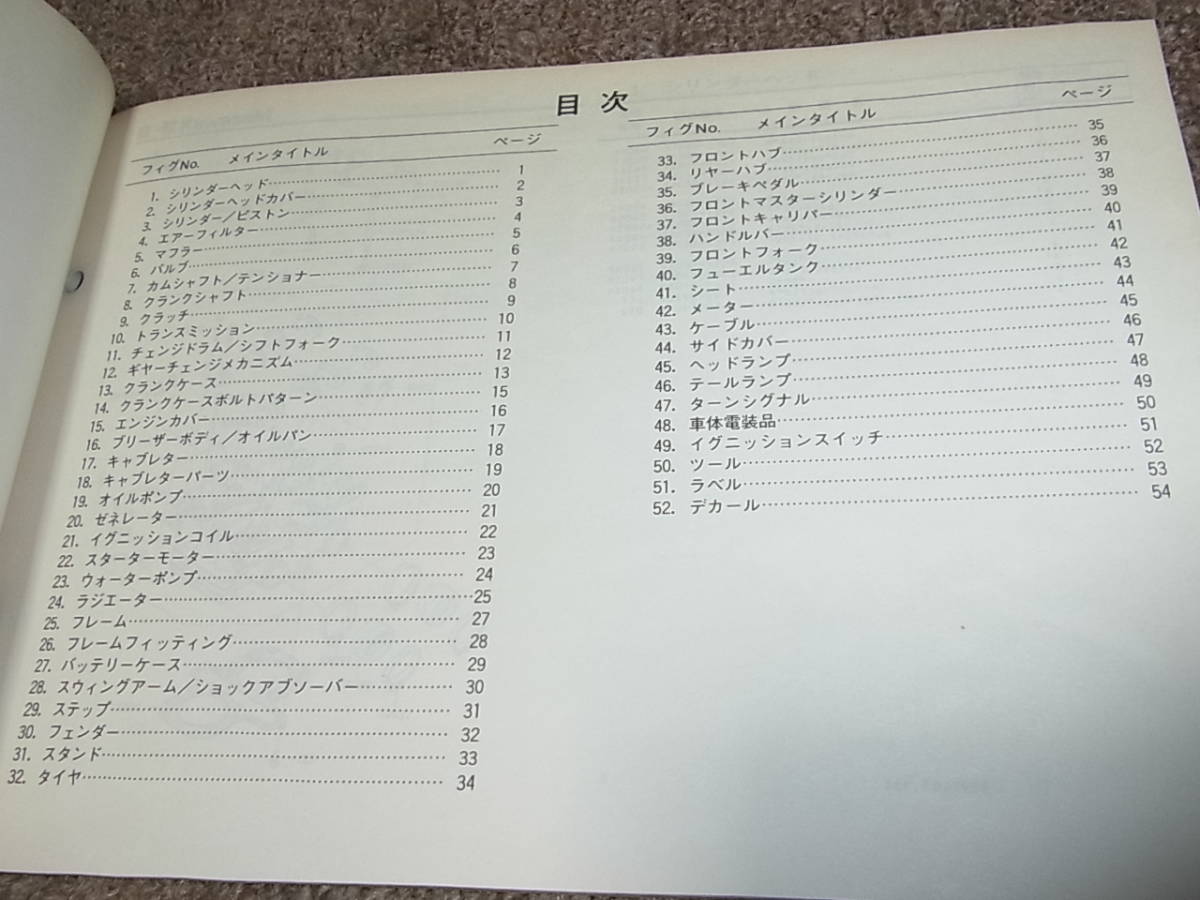 目次
フィグNo. メインタイトル ページ
1. シリンダーヘッド 1
2. シリンダーヘッドカバー 2
3. シリンダー／ピストン 3
4. エアーフィルター 4
5. マフラー 5
6. バルブ 6
7. カムシャフト／テンショナー 7
8. クランクシャフト 8
9. クラッチ 9
10. トランスミッション 10
11. チェンジドラム／シフトフォーク 11
12. ギヤーチェンジメカニズム 12
13. クランクケース 13
14. クランクケースボルトパターン 15
15. エンジンカバー 16
16. ブリーザーボディ／オイルパン 17
17. キャブレター 18
18. キャブレターパーツ 19
19. オイルポンプ 20
20. ゼネレーター 21
21. イグニッションコイル 22
22. スターターモーター 23
23. ウォーターポンプ 24
24. ラジエーター 25
25. フレーム 27
26. フレームフィッティング 28
27. バッテリーケース 29
28. スウィングアーム／ショックアブソーバー 30
29. ステップ 31
30. フェンダー 32
31. スタンド 33
32. タイヤ 34
フィグNo. メインタイトル ページ
33. フロントハブ 35
34. リヤーハブ 36
35. ブレーキペダル 37
36. フロントマスターシリンダー 38
37. フロントキャリパー 39
38. ハンドルバー 40
39. フロントフォーク 41
40. フューエルタンク 42
41. シート 43
42. メーター 44
43. ケーブル 45
44. サイドカバー 46
45. ヘッドランプ 47
46. テールランプ 48
47. ターンシグナル 49
48. 車体電装品 50
49. イグニッションスイッチ 51
50. ツール 52
51. ラベル 53
52. デカール 54